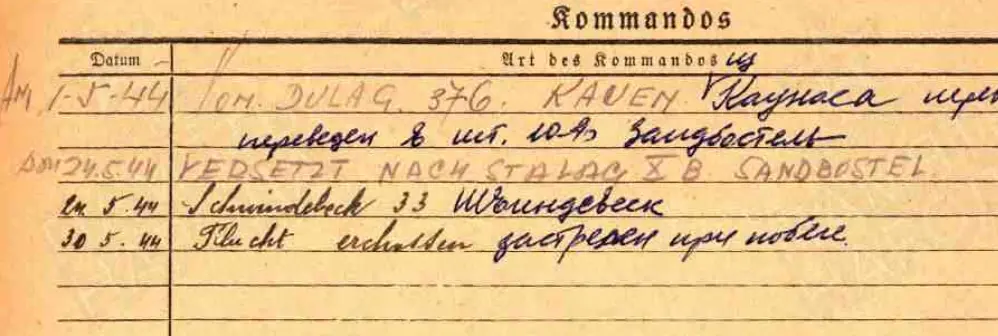 Kommandos
Datum Art des Kommandos из
1-5-44 Vom. DULAG. 376. KAUEN. Каунаса
переведен в шт. 10-В Зандбостель
24.5.44 VERSETZT NACH STALAG X B SANDBOSTEL.
24. 5.44 Schwindebeck 33 Швиндебек
30 5.44 Flucht erschossen застрелен при побеге.